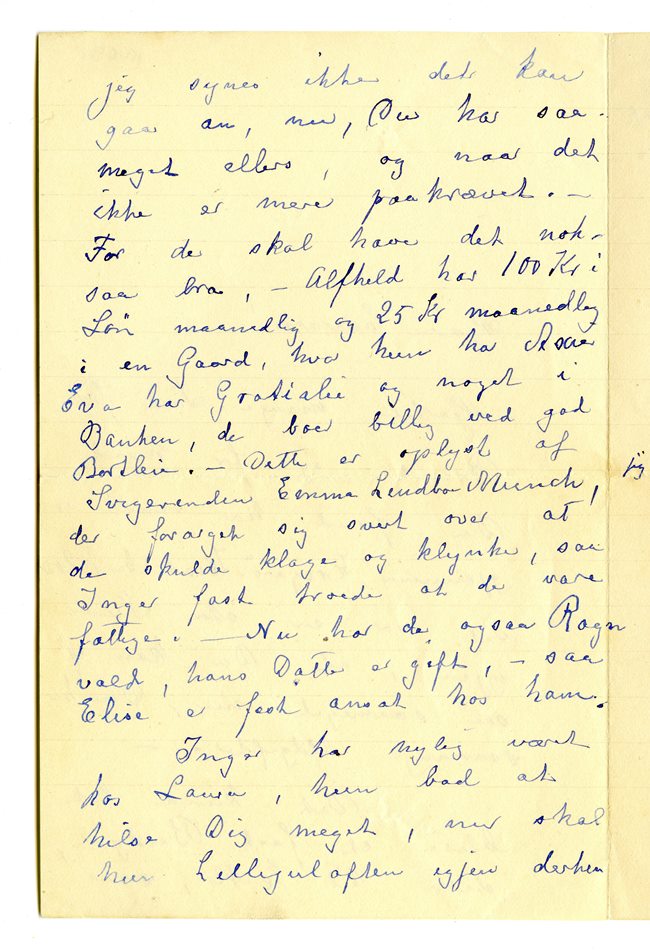 jeg synes ikke det kan
gaar an, nu, Du har saa-
meget ellers, og naar det
ikke er mere paakrævet. –
For de skal have det nok-
saa bra, – Alfheld har 100 Kr i
Løn maanedlig og 25 Kr maanedlig
i en Gaard, hvor hun har
Eva har Gratiale og noget i
Banken, de boer billig ved god
Bortleie. – Dette er oplyst af
Svigerinden Emma Lindboe Munch,
der forarget sig svert over at
de skulde klage og klynke, saa
Inger fast troede at de vare
fattige. – Nu har de ogsaa Ragn
vald, hans Datter er gift, – saa
Elise er fast ansat hos ham.
Inger har nylig været
hos Laura, hun bad at
hilse Dig meget, nu skal
hun Lillejulaften igjen derhen
jeg